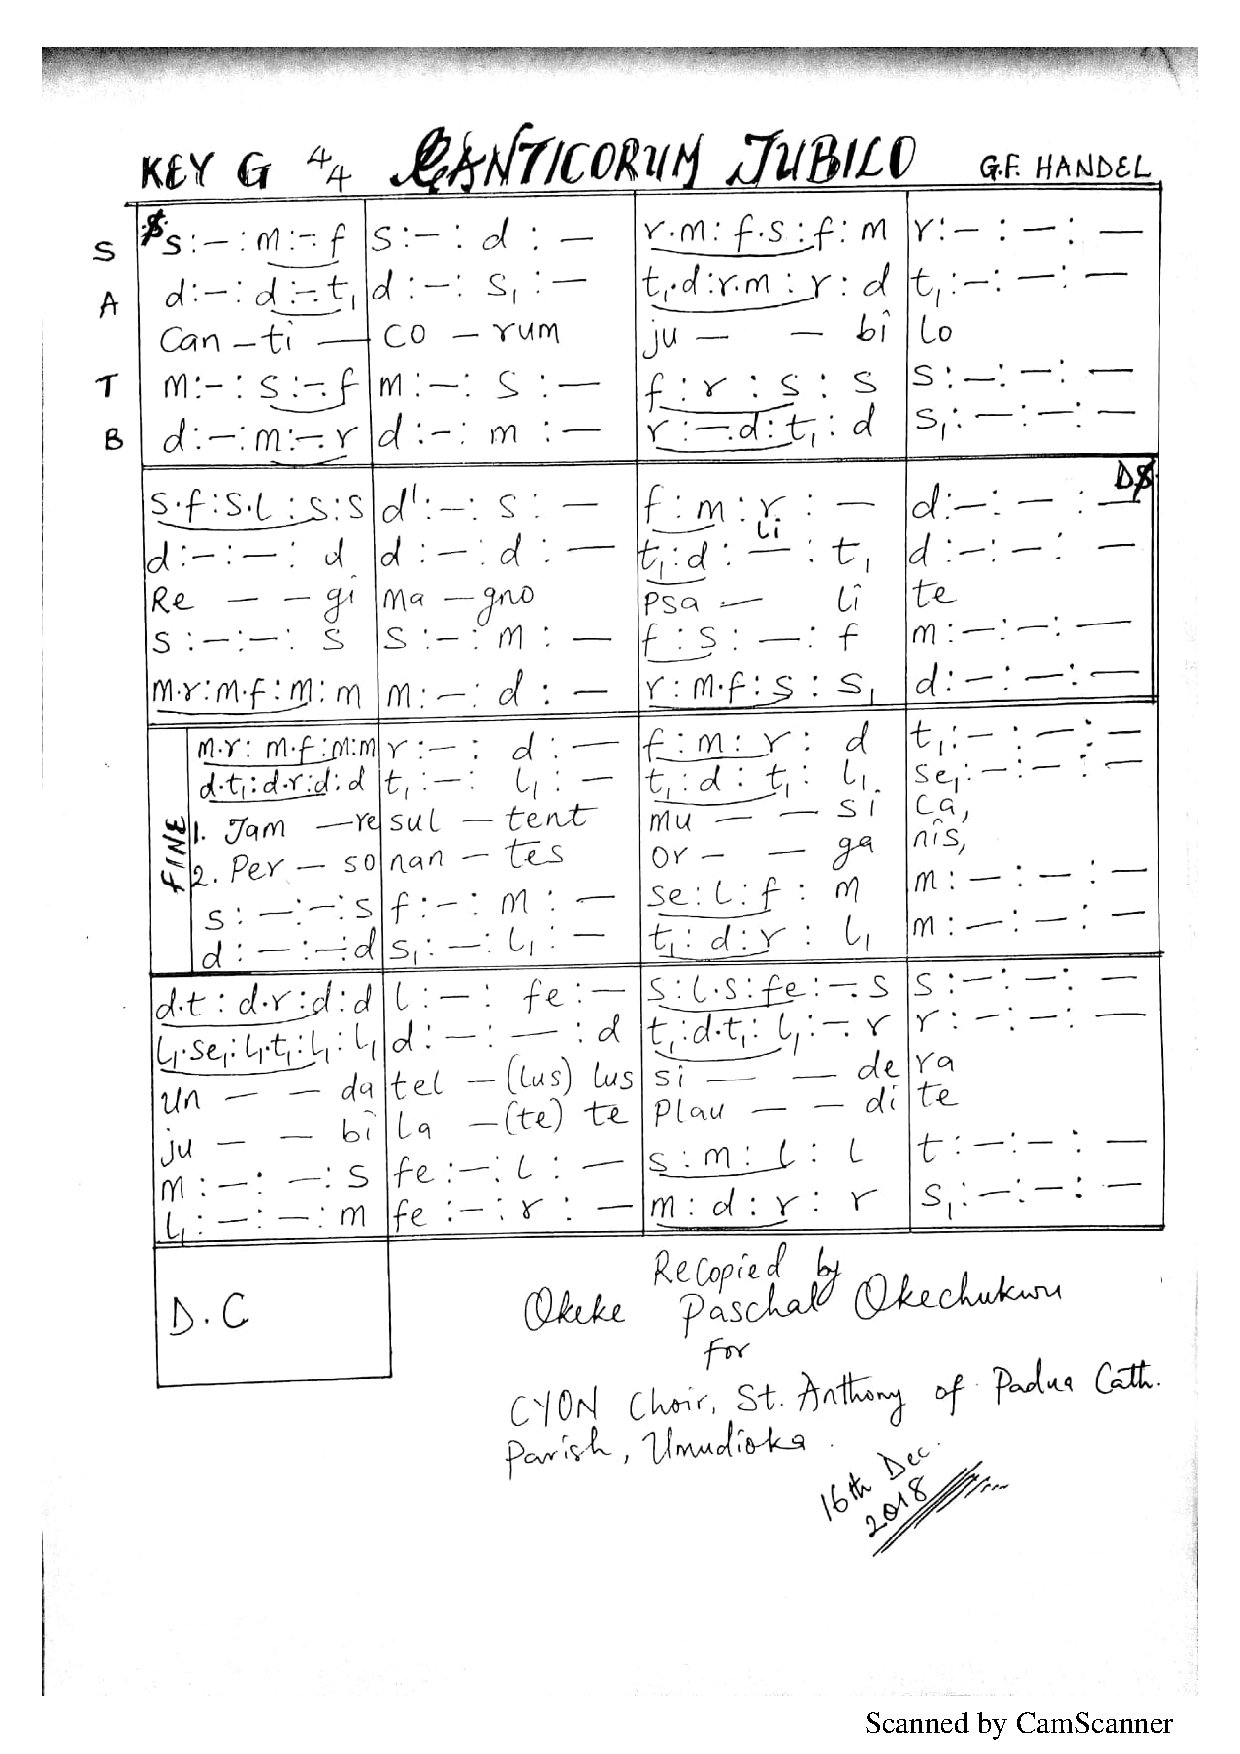 KEY G 4/4 CANTICORUM JUBILO G.F. HANDEL
S 𝄋 s:–:m:–.f | s:–:d:– | r.m:f.s:f:m | r:–:–:–
A d:–:d:–.t₁ | d:–:s₁:– | t₁.d:r.m:r:d | t₁:–:–:–
Can – ti — co – rum ju – – bi lo
T m:–:s:–.f | m:–:s:– | f:r:s:s | s:–:–:–
B d:–:m:–.r | d:–:m:– | r:–.d:t₁:d | s₁:–:–:–
D𝄋
s.f:s.l:s:s | d':–:s:– | f:m:r:– | d:–:–:–
li
d:–:–:d | d:–:d:– | t₁:d:–:t₁ | d:–:–:–
Re – – gi ma – gno psa – li te
s:–:–:s | s:–:m:– | f:s:–:f | m:–:–:–
m.r:m.f:m:m | m:–:d:– | r:m.f:s:s₁ | d:–:–:–
FINE
m.r:m.f:m:m | r:–:d:– | f:m:r:d | t₁:–:–:–
d.t₁:d.r:d:d | t₁:–:l₁:– | t₁:d:t₁:l₁ | se₁:–:–:–
1. Jam – re sul – tent mu – – si ca,
2. Per – so nan – tes or – – ga nis,
s:–:–:s | f:–:m:– | se:l:f:m | m:–:–:–
d:–:–:d | s₁:–:l₁:– | t₁:d:r:l₁ | m:–:–:–
d.t:d.r:d:d | l:–:fe:– | s:l.s:fe:–.s | s:–:–:–
l₁.se₁:l₁.t₁:l₁:l₁ | d:–:–:d | t₁:d.t₁:l₁:–.r | r:–:–:–
un – – da tel – (lus) lus si – – de ra
ju – – bi la – (te) te plau – – di te
m:–:–:s | fe:–:l:– | s:m:l:l | t:–:–:–
l₁:–:–:m | fe:–:r:– | m:d:r:r | s₁:–:–:–
D.C
Recopied by
Okeke Paschal Okechukwu
for
CYON Choir, St. Anthony of Padua Cath.
Parish, Umudioka.
16th Dec.
2018
Scanned by CamScanner